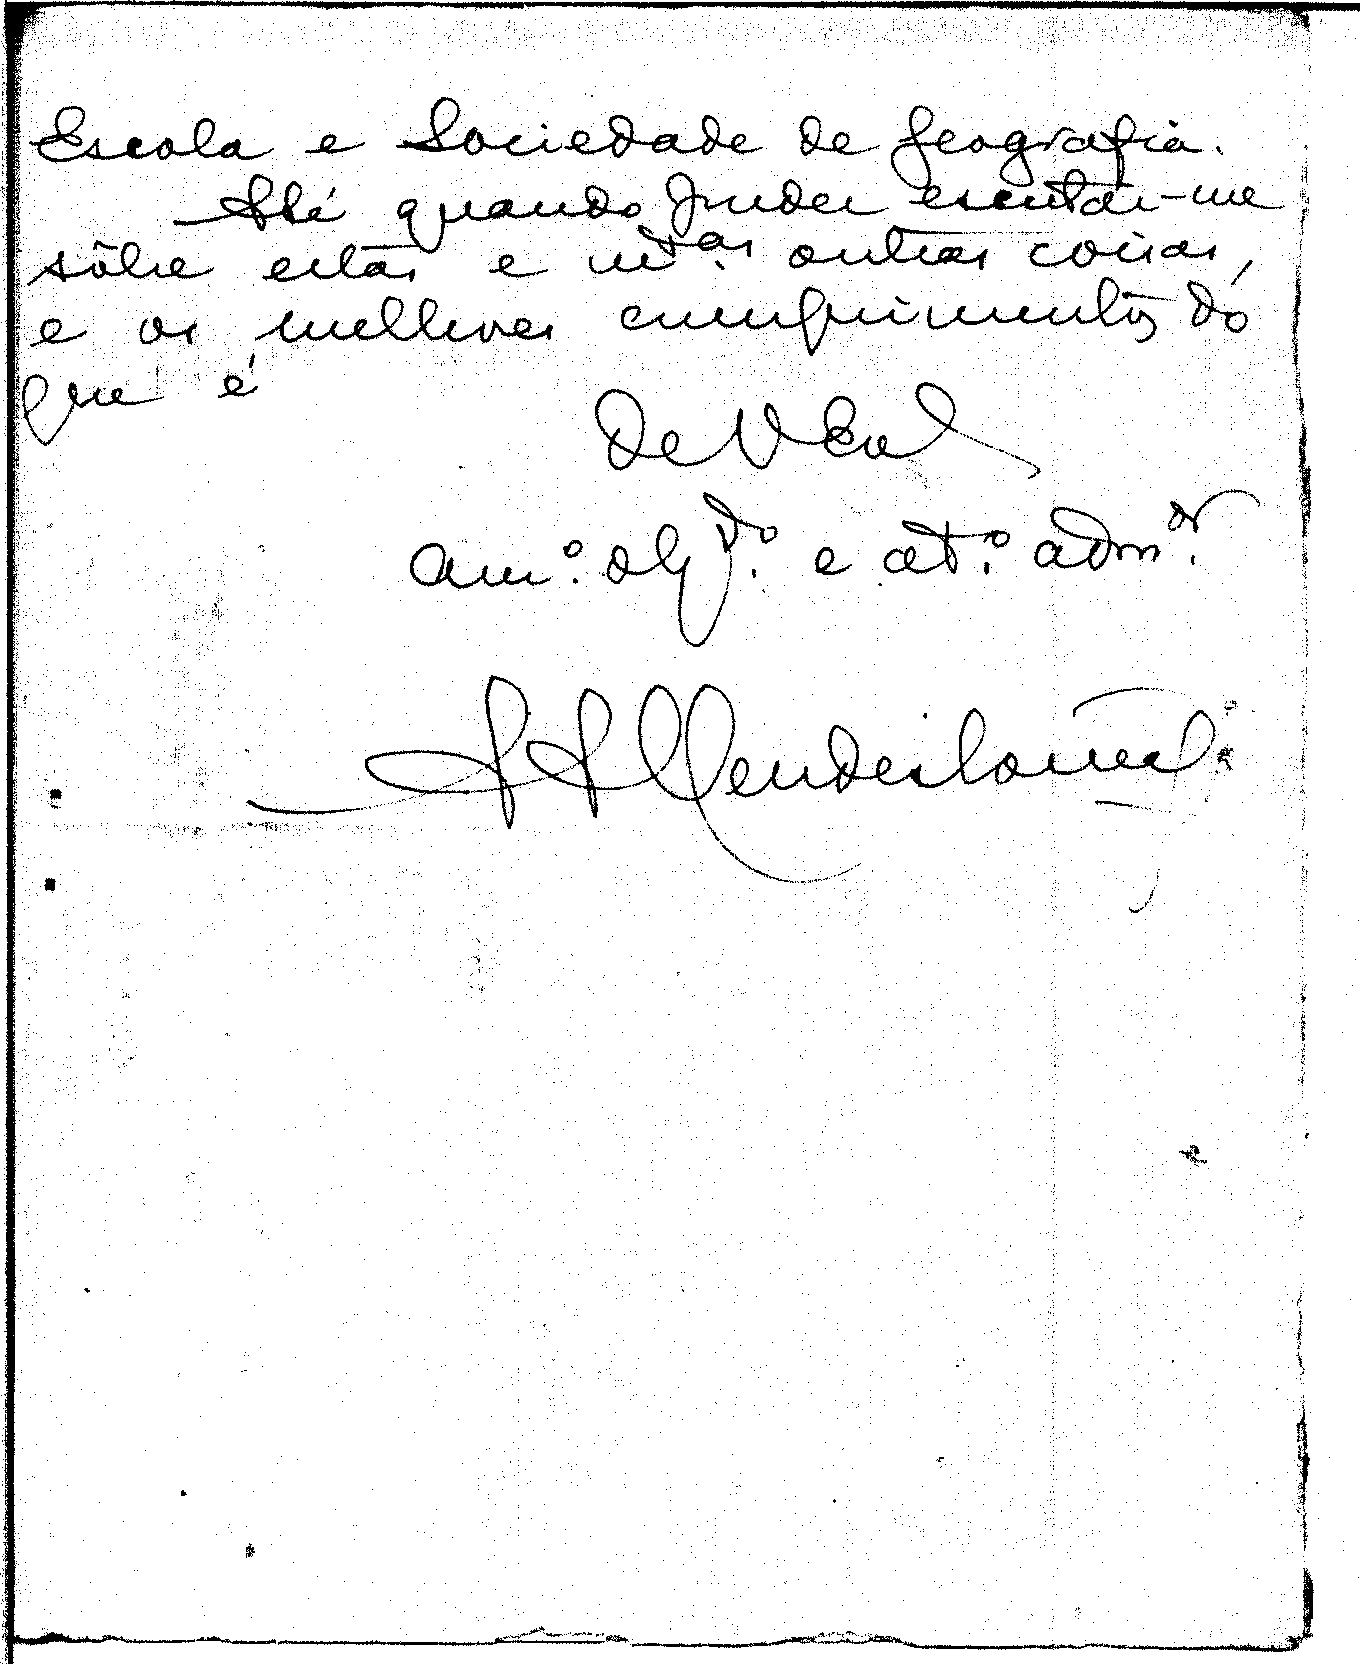 Escola e Sociedade de Geografia.
Até quando puder escutar-me
sôbre estas e mtas. outras coisas,
e os melhores cumprimentos do
que é
De V Exa
amo. obgdo. e ato. admor.
A A Mendes Corrêa